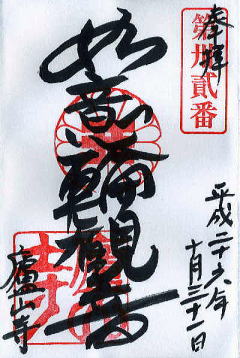 奉拝
第卅貳番
如意輪観音
平成二十六年
十月三十一日
廬山寺